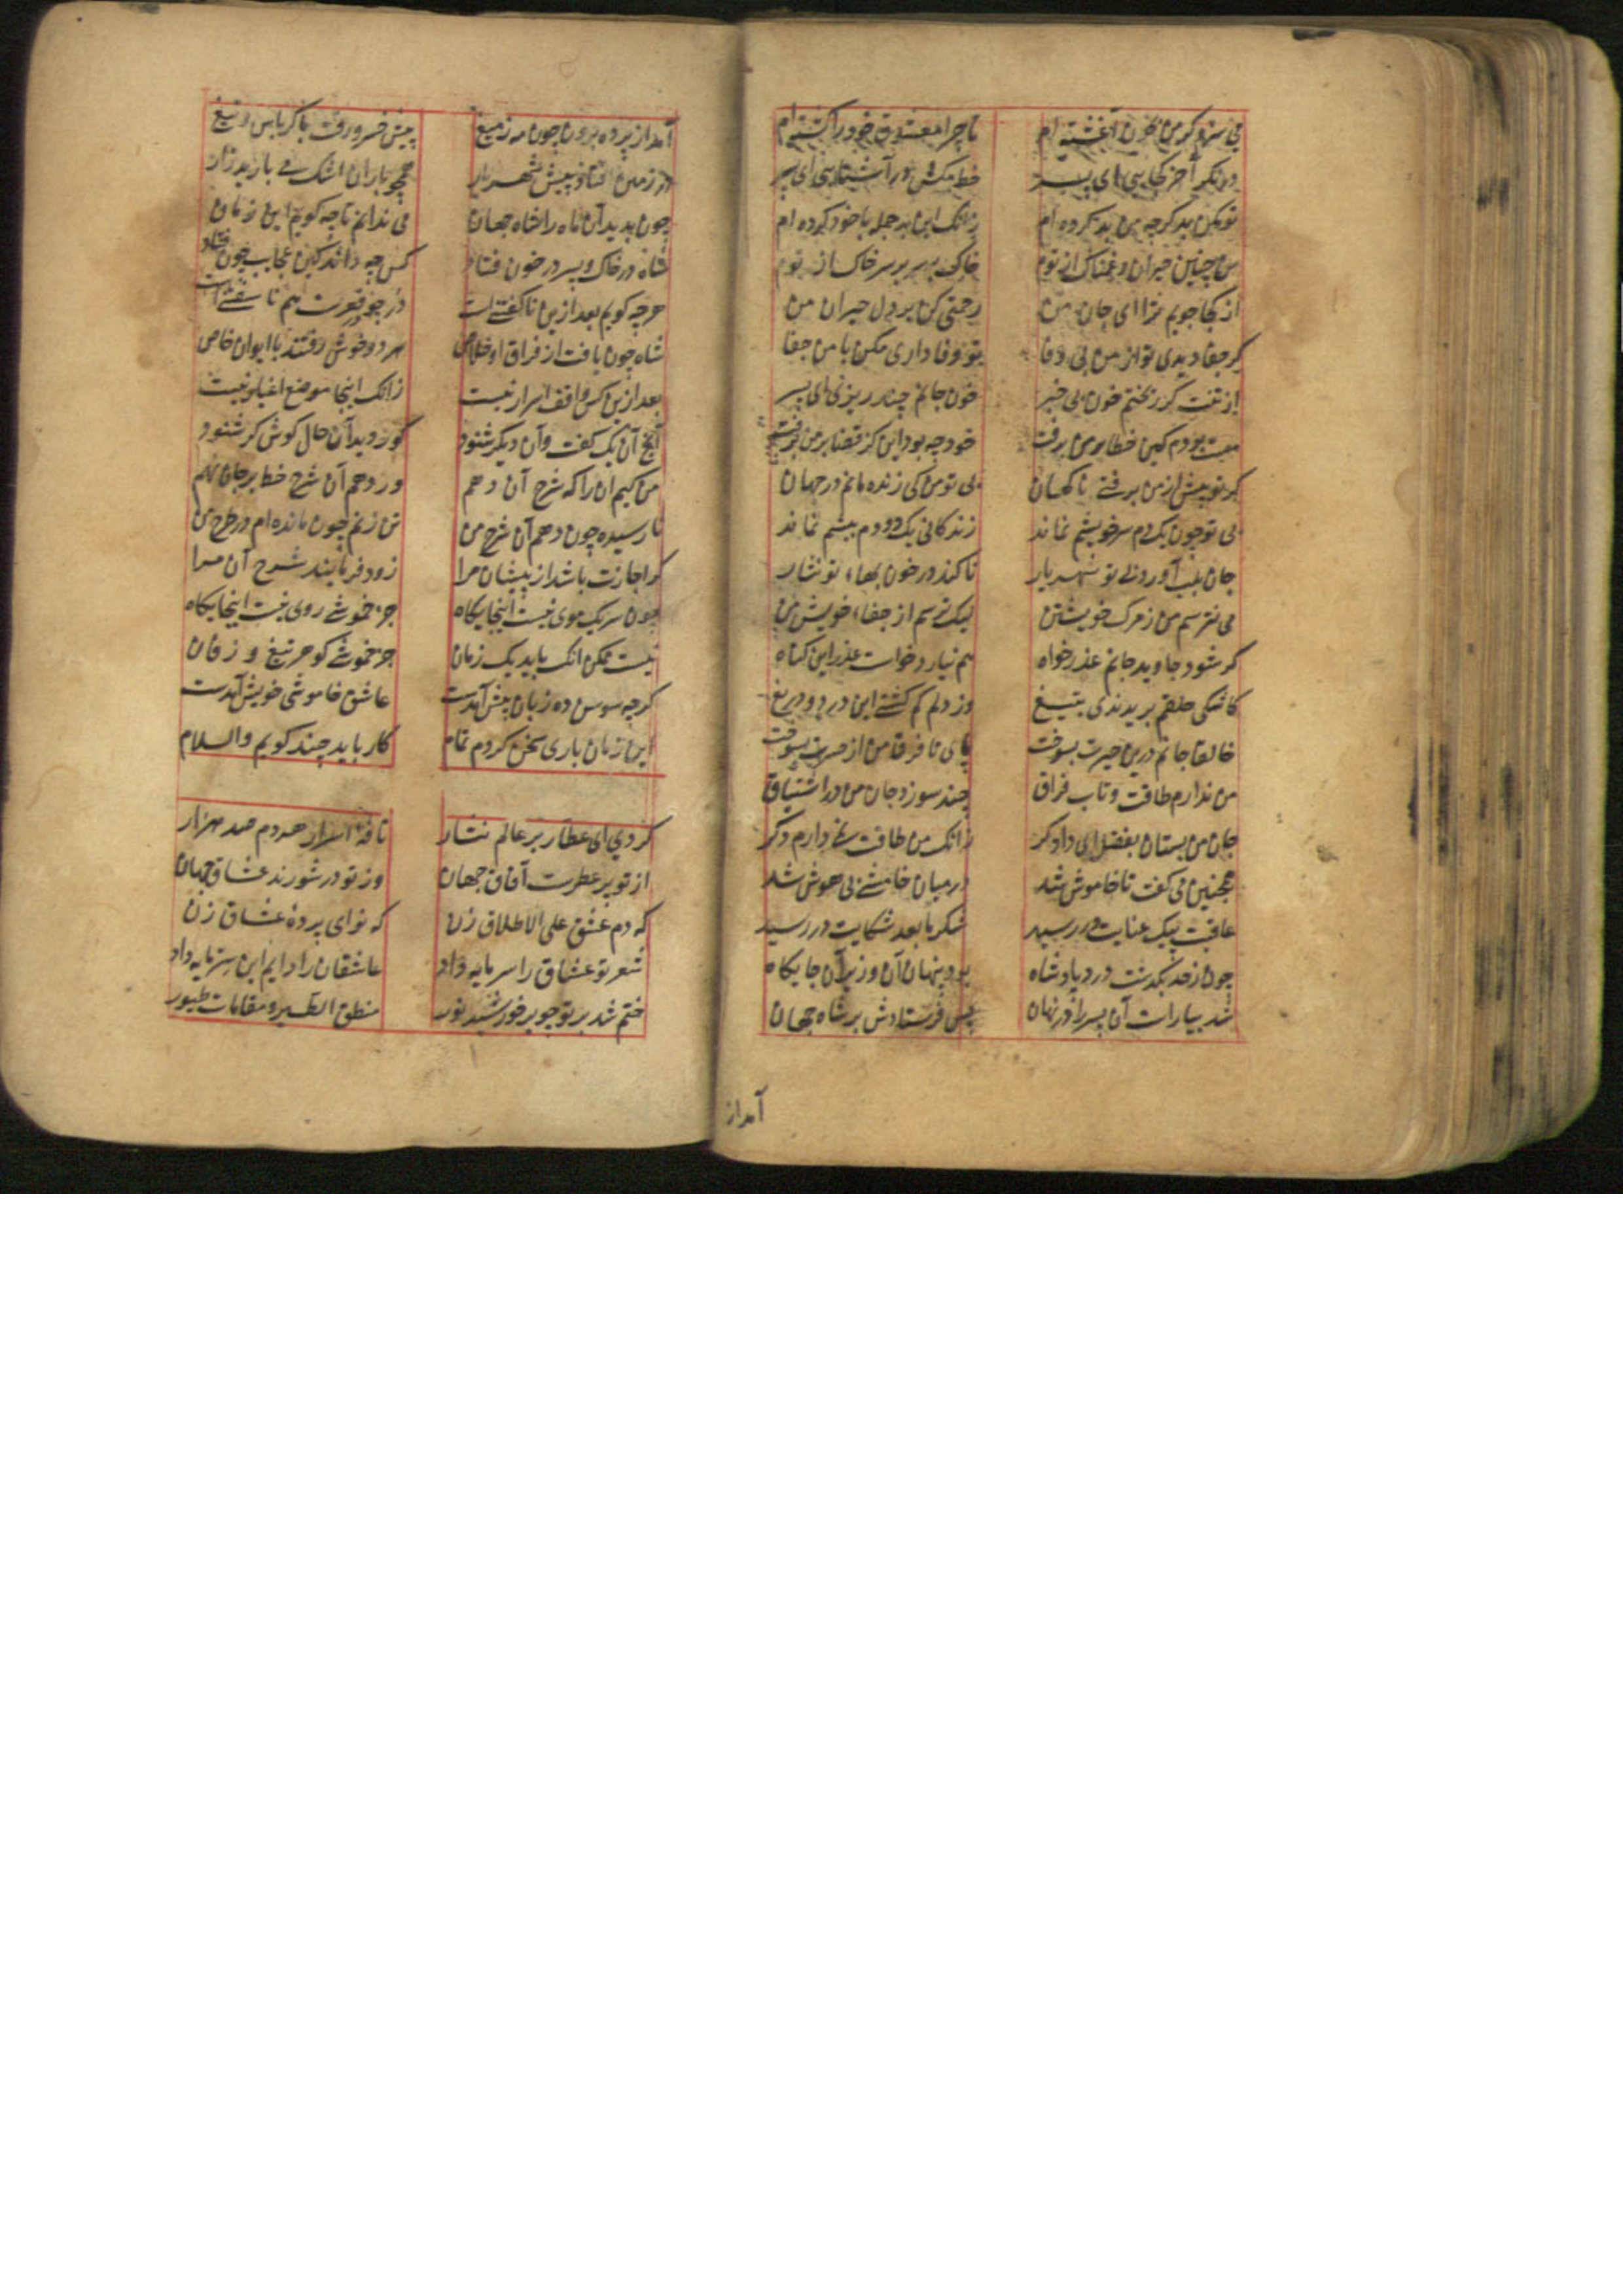 می سزد کر من بخون آغشته ام تا چرا معشوق خود را کشته ام
در نکر آخر کجایی ای پسر خط مکش در آشنایی ای پسر
تو مکن بد کرچه من بد کرده ام زانک این بد جمله با خود کرده ام
من چنین حیران و غمناک از توم خاک بر سر بر سر خاک از توم
از کجا جویم ترا ای جان من رحمتی کن بر دل حیران من
کر جفا دیدی تو از من بی وفا تو وفاداری مکن با من جفا
از تنت کر ریختم خون بی خبر خون جانم چند ریزی ای پسر
مست بودم کین خطا بر من برفت خود چه بود این کز قضا بر من برفت
کر تو پیش از من برفتی ناکهان بی تو من کی زنده مانم در جهان
بی تو چون یک دم سر خویشم نماند زندکانی یک دو دم بیشم نماند
جان بلب آورد بی تو شهریار تا کند در خون بهاء تو نثار
می نترسم من ز مرک خویشتن لیک ترسم از جفاء خویش من
کر شود جاوید جانم عذر خواه هم نیارد خواست عذر این کناه
کاشکی حلقم بریدندی بتیغ وز دلم کم کشتی این درد و دریغ
خالقا جانم درین حیرت بسوخت پای تا فرق من از حسرت بسوخت
من ندارم طاقت و تاب فراق چند سوزد جان من در اشتیاق
جان من بستان بفضل ای دادکر زانک من طاقت نمی دارم دکر
همچنین می کفت تا خاموش شد در میان خامشی بی هوش شد
عاقبت پیک عنایت در رسید شکر ما بعد شکایت در رسید
چون ز حد بکذشت درد پادشاه بود پنهان آن وزیر آن جایکاه
شد بیاراست آن پسر را در نهان پس فرستادش بر شاه جهان
آمد از
آمد از پرده برون چون مه ز میغ پیش خسرو رفت با کرباس و تیغ
در زمین افتاد پیش شهریار همچو باران اشک می بارید زار
چون بدید آن ماه را شاه جهان می ندانم تا چه کویم این زمان
شاه در خاک و پسر در خون فتاد کس چه داند کین عجایب چون فتاد
هرچه کویم بعد ازین ناکفتنی است در چو قعرت هم ناسفتنی است
شاه چون یافت از فراق او خلاص هر دو خوش رفتند با ایوان خاص
بعد ازین کس واقف اسرار نیست زانک اینجا موضع اغیار نیست
آنچ آن یک کفت و آن دیکر شنود کور دید آن حال کوش کر شنود
من کیم آن را که شرح آن دهم ور دهم آن شرح خط بر جان نهم
نا رسیده چون دهم آن شرح من تن زنم چون مانده ام در طرح من
کر اجازت باشد از پیشان مرا زود فرمایند شرح آن مرا
چون سر یک موی نیست اینجایکاه جز خموشی روی نیست اینجایکاه
نیست ممکن آنک یابد یک زمان جز خموشی کوهر تیغ و زفان
کرچه سوسن ده زبان پیش آمدست عاشق خاموشی خویش آمدست
این زمان باری سخن کردم تمام کار باید چند کویم والسلام
کردی ای عطار بر عالم نثار نافه اسرار هر دم صد هزار
از تو پر عطرست آفاق جهان وز تو در شورند عشاق جهان
که دم عشق علی الاطلاق زن که نوای پرده عشاق زن
شعر تو عشاق را سرمایه داد عاشقان را دایم این سرمایه داد
ختم شد بر تو چو بر خورشید نور منطق الطیر و مقامات طیور